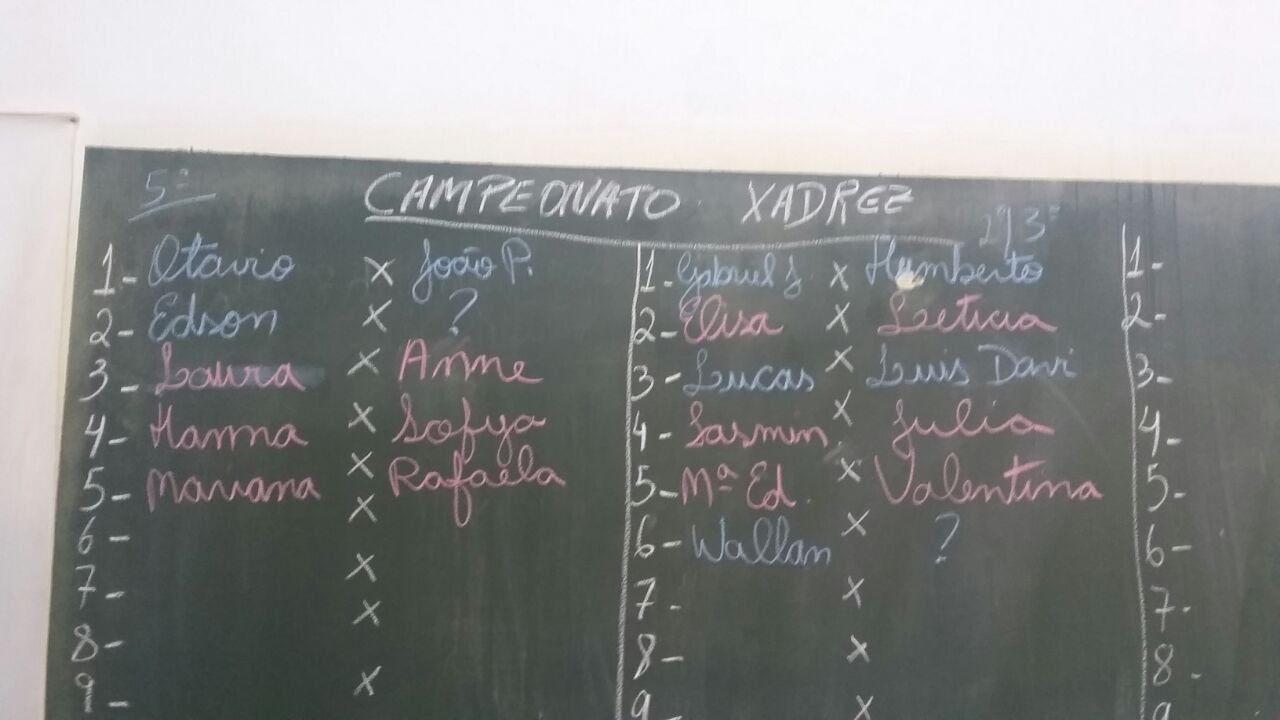 5ª CAMPEONATO XADREZ
1- Otavio X João P.
2- Edson X ?
3- Laura X Anne
4- Hanna X Sofya
5- Mariana X Rafaela
6- X
7- X
8- X
9- X
1- Gabriel J. X Humberto
2- Elisa X Leticia
3- Lucas X Luis Davi
4- Iasmin X Julia
5- Mª Ed. X Valentina
6- Wallan X ?
7- X
8- X
9 X
1-
2-
3-
4-
5-
6-
7-
8-
9